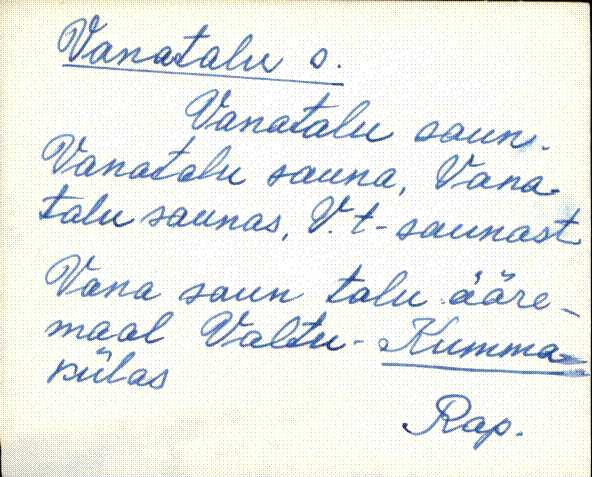 Vanatalu s.
Vanatalu saun.
Vanatalu sauna, Vana-
talu saunas, V. t-saunast
Vana saun talu ääre-
maal Valtu-Kumma
külas
Rap.